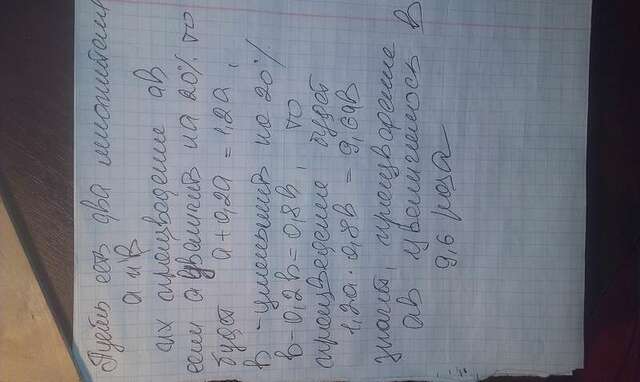 Пусть есть два множителя
а и в
их произведение ав
если а увеличить на 20% то
будет а+0,2а = 1,2а,
в - уменьшить на 20%
в-0,2в=0,8в, то
произведение будет
1,2а · 0,8в = 9,6ав
значит, произведение
ав увеличилось в
9,6 раза